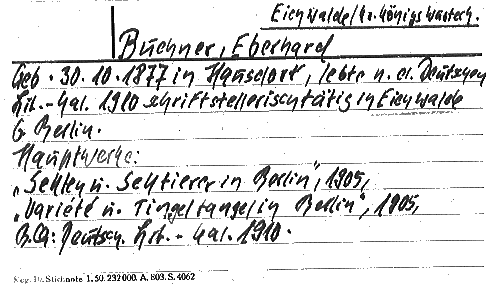 Eichwalde/Kr. Königswusterh.
Buchner, Eberhard
Geb. 30.10.1877 in Hansdorf, lebte n. d. Deutschen
Lit.-Kal. 1910 schriftstellerisch tätig in Eichwalde
b Berlin.
Hauptwerke:
„Sekten u. Sektierer in Berlin", 1905,
„Varieté u. Tingeltangel in Berlin", 1905,
B.Q: Deutsch. Lit.-Kal. 1910.
Stichnote 1. 50. 232000. A. 803. S. 4062